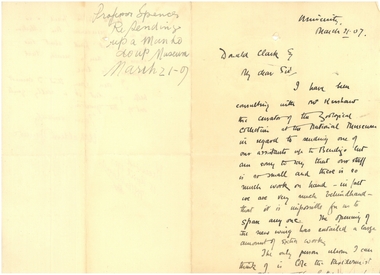 Professor Spencer
Re Sending
up a Man to
Museum
March 21-07
University,
March 21.07.
Donald Clark Esq
My dear Sir,
I have been
consulting with Mr Kershaw
the curator of the Zoological
Collection at the National Museum
in regard to sending one of
our assistants up to Bendigo but
am sorry to say that our staff
is so small and there is so
much work on hand - in fact
we are very much behindhand -
that it is impossible for us to
spare any one. The opening of
the new wing has entailed a large
amount of extra work.
The only person whom I can
think of is Cole the Taxidermist